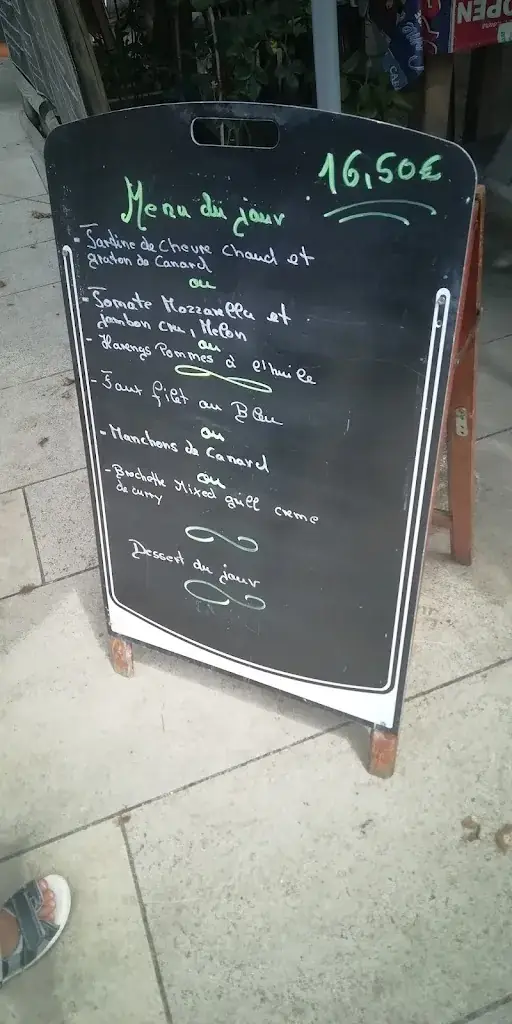 OPEN
16,50€
Menu du jour
- Tartine de chevre chaud et
graton de Canard
ou
- Tomate Mozzarella et
jambon cru, Melon
ou
- Harengs Pommes à l'huile
- Faux filet au Bleu
ou
- Manchons de Canard
ou
- Brochette Mixed grill creme
de curry
Dessert du jour